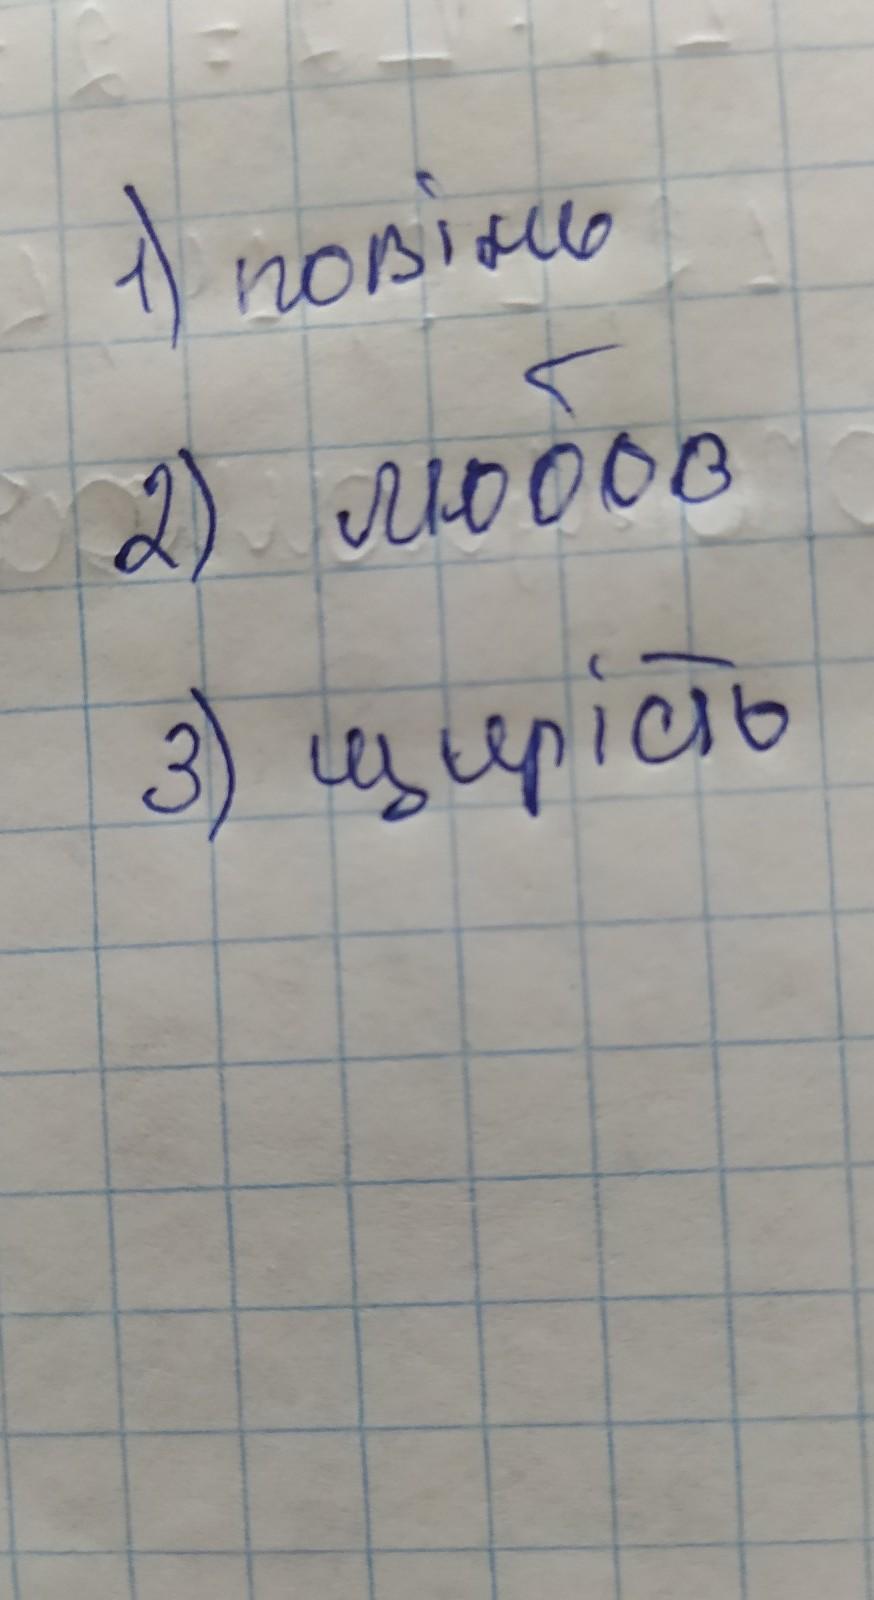 1) повінь
2) любов
3) щирість